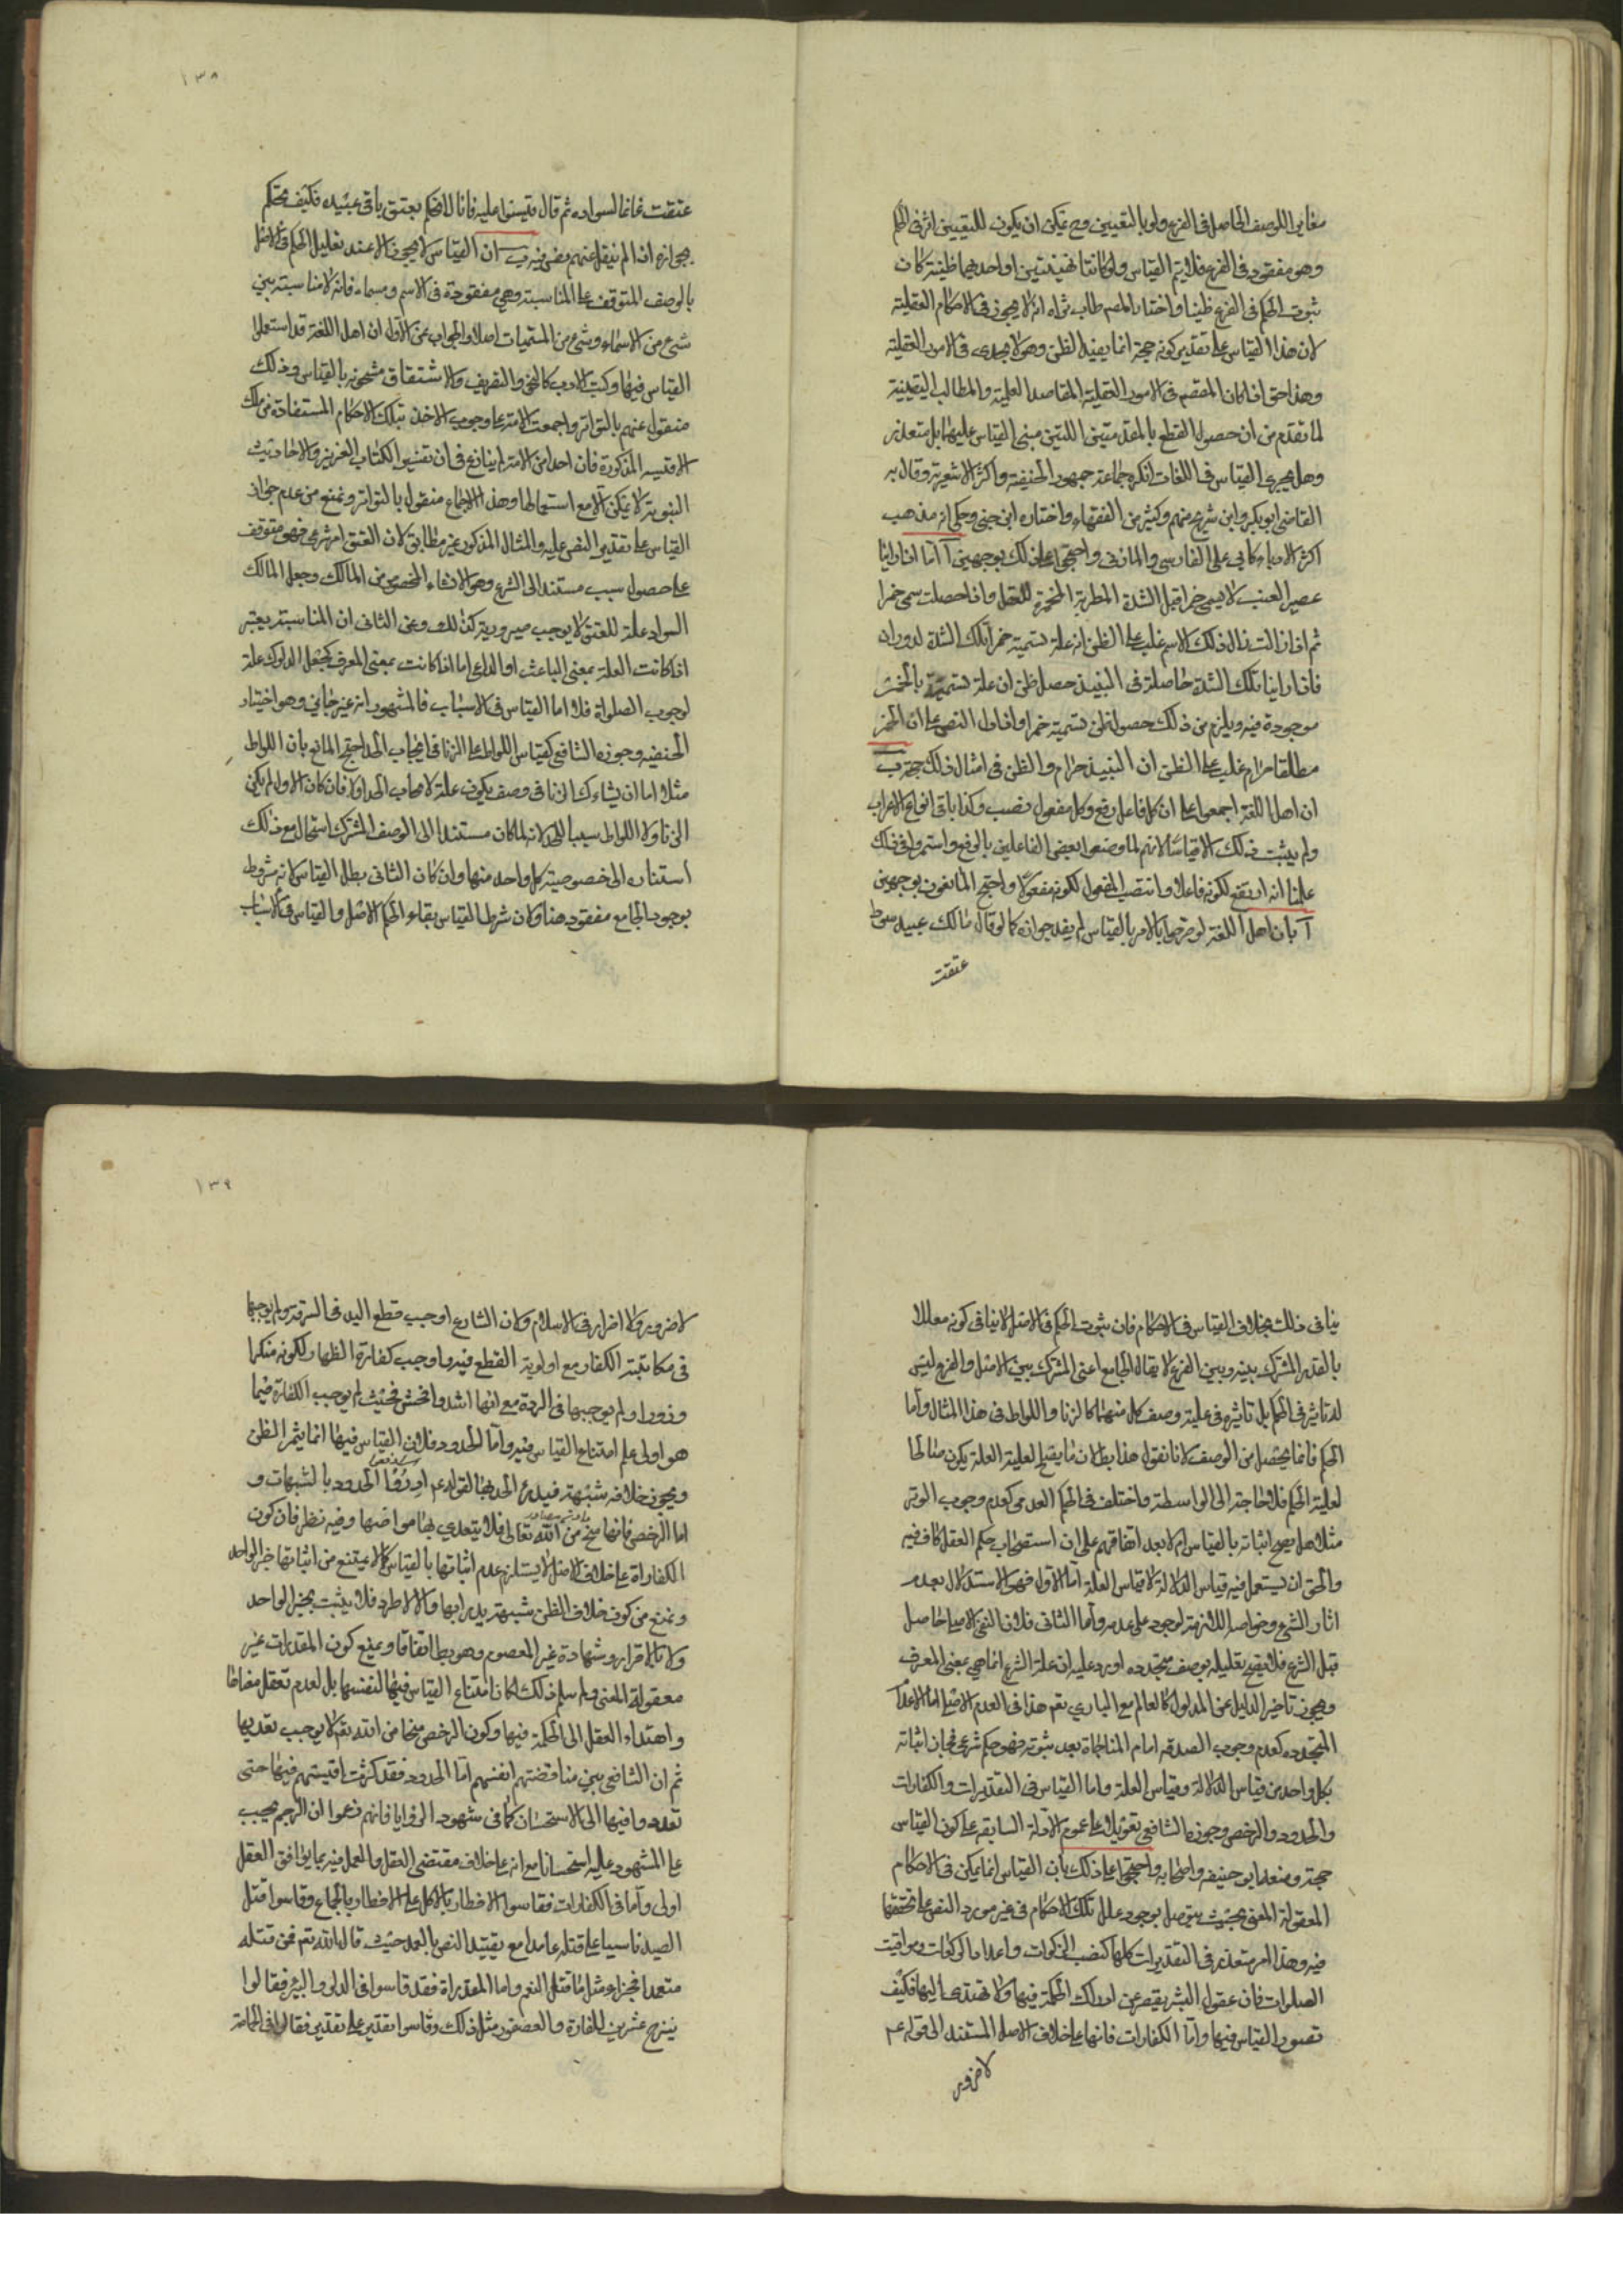 مغاير اللوصف الحاصل فى الفرع ولو بالتعيين وح يمكن ان يكون للتعيين اثر فى الحكم
وهو مفقود فى الفرع فلا يتم القياس ولو كانتا ظنيتين او احديهما ظنية كان
ثبوت الحكم فى الفرع ظنيا واختار المصم طاب ثراه انه لا يجرى فى الاحكام العقلية
لان هذا القياس على تقدير كونه حجة انما يفيد الظن وهو لا يجدى فى الامور العقلية
وهذا حق اذا كان المقصم فى الامور العقلية المقاصد العلمية والمطالب اليقينية
لما تقدم من ان حصول القطع بالمقدمتين اللتين مبنى القياس عليهما بل متعذر
وهل يجرى القياس فى اللغات انكره جماعة جمهور الحنفية واكثر الاشعرية وقال به
القاضى ابو بكر وابن شريح منهم وكثير من الفقهاء واختاره ابن جنى وحكى انه مذهب
اكثر الادباء كابى على الفارسى والمازنى واحتجوا على ذلك بوجهين آ انا اذا راينا
عصير العنب لا يسمى خمرا قبل الشدة المطربة المخمرة للعقل واذا حصلت سمى خمرا
ثم اذا زالت زال ذلك الاسم غلب على الظن ان علة تسميته خمرا تلك الشدة لدوران
فاذا راينا تلك الشدة حاصلة فى النبيذ حصل ظن ان علة تسميته بالخمر
موجودة فيه ويلزم من ذلك حصول ظن تسميته خمرا واذا دل النص على ان الخمر
مطلقا حرام غلب على الظن ان النبيذ حرام والظن فى امثال ذلك حجة ب
ان اهل اللغة اجمعوا على ان كل فاعل رفع وكل مفعول نصب وكذا باقى انواع الاعراب
ولم يثبت ذلك الا قياسا لانهم لما وضعوا بعض الفاعلين بالرفع واستمروا فى ذلك
علمنا انه ارتفع لكونه فاعلا وانتصب المفعول لكونه مفعولا واحتج المانعون بوجهين
آ بان اهل اللغة لو صرحوا بالامر بالقياس لم يفد جوازه كما لو قال مالك عبيد سود
عتقت
١٣٨
عتقت غانما لسواده ثم قال قيسوا عليه فانا لا نحكم بعتق باقى عبيده فكيف يحكم
بجوازه اذا لم ينقل عنهم نص فيه ب ان القياس لا يجرى الا عند تعليل الحكم فى الاصل
بالوصف المتوقف على المناسبة وهى مفقودة فى الاسم ومسماه فانه لا مناسبة بين
شئ من الاسماء وشئ من المسميات اصلا والجواب عن الاول ان اهل اللغة قد استعملوا
القياس فيها وكتب الادب كالنحو والتصريف والاشتقاق مشحونة بالقياس وذلك
منقول عنهم بالتواتر واجمعت الامة على وجوب الاخذ بتلك الاحكام المستفادة من تلك
الاقيسه المذكورة فان احدا من الامة لم ينازع فى ان تفسير الكتاب العزيز والاحاديث
النبوية لا يمكن الا مع استعمالها وهذا الاجماع منقول بالتواتر ونمنع من عدم جواز
القياس على تقدير النص عليه والمثال المذكور غير مطابق لان العتق امر شرعى فهو متوقف
على حصول سبب مستند الى الشرع وهو الانشاء المخصوص من المالك وجعل المالك
السواد علة للعتق لا يوجب صيرورته كذلك وعن الثانى ان المناسبة يعتبر
اذا كانت العلة بمعنى الباعث او الداعى اما اذا كانت بمعنى المعرف كجعل الدلوك علة
لوجوب الصلواة فلا اما القياس فى الاسباب فالمشهور انه غير جايز وهو اختيار
الحنفيه وجوزه الشافعى كقياس اللواط على الزنا فى ايجاب الحد احتج المانع بان اللواط
مثلا اما ان يشارك الزنا فى وصف يكون علة لايجاب الحد اولا فان كان الاول لم يكن
الزنا ولا اللواط سببا للحد لانه لما كان مستندا الى الوصف المشترك استحال مع ذلك
استناده الى خصوصية كل واحد منهما وان كان الثانى بطل القياس لانه مشروط
بوجود الجامع مفقود هنا ولان شرط القياس بقاء الحكم الاصل والقياس فى الاسباب
ينافى ذلك بخلاف القياس فى الاحكام فان ثبوت الحكم فى الاصل لا ينافى كونه معللا
بالقدر المشترك بينه وبين الفرع لا يقال الجامع اعنى المشترك بين الاصل والفرع ليس
له تاثير فى الحكم بل تاثيره فى علية وصف كل منهما كالزنا واللواط فى هذا المثال واما
الحكم فانما يحصل من الوصف لانا نقول هذا بط لان ما يصلح لعلية العلة يكون صالحا
لعلية الحكم فلا حاجة الى الواسطة واختلف فى الحكم العدمى كعدم وجوب الوتر
مثلا هل يصح اثباته بالقياس ام لا بعد اتفاقهم على ان استصحاب حكم العقل كاف فيه
والحق ان يستعمل فيه قياس الدلالة لا قياس العلة اما الاول فهو الاستدلال بعدم
اثار الشئ وخواصه اللازمة لوجود على عدمه واما الثانى فلان النفى الاصلى حاصل
قبل الشرع فلا يصح تعليله بوصف متجدده اورد عليه ان علة الشرع انما هى بمعنى المعرف
ويجوز تاخير الدليل عن المدلول كالعالم مع البارى تعم هذا فى العدم الاصلى اما الاعدام
المتجدده كعدم وجوب الصدقه امام المناجاة بعد ثبوته فهو حكم شرعى فجاز اثباته
بكل واحد من قياس الدلالة وقياس العلة واما القياس فى التقديرات والكفارات
والحدود والرخص وجوزه الشافعى تعويلا على عموم الادلة السابقه على كون القياس
حجة ومنعه ابو حنيفه واصحابه واحتجوا على ذلك بان القياس انما يمكن فى الاحكام
المعقولة المعنى بحيث يتوصل بوجود علل تلك الاحكام فى غير مورد النص على تحققها
فيه وهذا امر متعذر فى التقديرات كلها كنصب الزكوات واعداد الركوات ومواقيت
الصلوات فان عقول البشر يقصر عن ادراك الحكمة فيها ولا تهتدى اليها فكيف
تصور القياس فيها واما الكفارات فانها على خلاف الاصل المستند الى قوله عم
لا ضرور
١٣٩
لا ضرور ولا اضرار فى الاسلام ولان الشارع اوجب قطع اليد فى السرقة ولم يوجبها
فى مكاتبة الكفار مع اولوية القطع فيه واوجب كفارة الظهار لكونه منكرا
وزورا ولم يوجبها فى الردة مع انها اشد وافحش فحيث لم يوجب الكفارة فيما
هو اولى علم امتناع القياس فيه واما الحدود فلان القياس فيها انما يثمر الظن
ويجوز خلافه شبهة فيدرء الحد بها لقوله عم ادرؤا الحدود بالشبهات و
اما الرخص فانها منح من الله تعالى فلا يتعدى بها مواضعها وفيه نظر فان كون
الكفاراة على خلاف الاصل لا يستلزم عدم اثباتها بالقياس كما لا يمتنع من اثباتها خبر الواحد
ونمنع من كون خلاف الظن شبهة يدرا بها والا لاطرد فلا يثبت بخبر الواحد
ولا بالاقرار وشهادة غير المعصوم وهو بط اتفاقا ويمنع كون المقدرات غير
معقولة المعنى ولو سلم ذلك لكان امتناع القياس فيها لنفسها بل لعدم تعقل معناها
واهتداء العقل الى الحكمة فيها وكون الرخص منحا من الله تعم لا يوجب تعديها
ثم ان الشافعى بين مناقضتهم انفسهم اما الحدود فقد كثرت اقيستهم فيها حتى
تعدوا فيها الى الاستحسان كما فى شهود الزوايا فانهم زعموا ان الرجم يجب
على المشهود عليه استحسانا مع انه على خلاف مقتضى العقل والعمل فيه بما يوافق العقل
اولى واما فى الكفارات فقاسوا الافطار بالاكل على الافطار بالجماع وقاسوا قتل
الصيد ناسيا على قتله عامدا مع تقييد النص بالعمد حيث قال الله تعم فمن قتله
متعمدا فجزاء مثل ما قتل من النعم واما المقدراة فقد قاسوا فى الدلو والبئر فقالوا
ينزح عشرين للفارة والعصفور مثل ذلك وقاسوا تقدير على تقدير فقالوا فى الحمامة